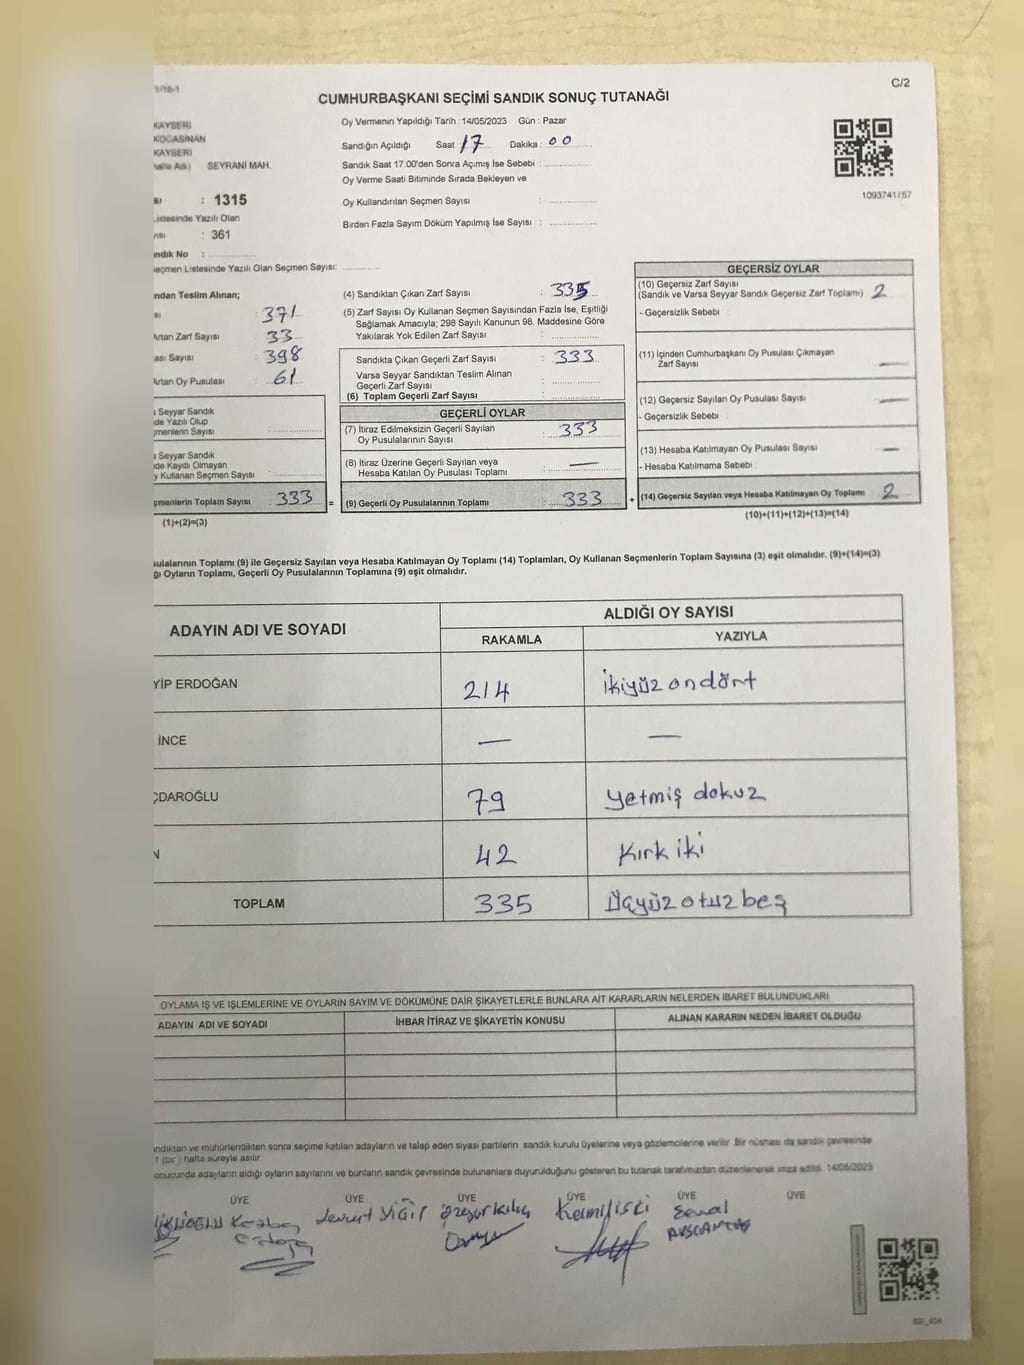 C/2
CUMHURBAŞKANI SEÇİMİ SANDIK SONUÇ TUTANAĞI
Oy Vermenin Yapıldığı Tarih : 14/05/2023 Gün : Pazar
KAYSERİ
KOCASİNAN
KAYSERİ
SEYRANİ MAH.
Sandığın Açıldığı Saat 17 Dakika : 00
Sandık Saat 17:00'den Sonra Açımış İse Sebebi :
Oy Verme Saati Bitiminde Sırada Bekleyen ve
Oy Kullandırılan Seçmen Sayısı :
Birden Fazla Sayım Döküm Yapılmış İse Sayısı :
1093741757
: 1315
Listesinde Yazılı Olan
: 361
ndık No :
eçmen Listesinde Yazılı Olan Seçmen Sayısı:
ndan Teslim Alınan;
371
Artan Zarf Sayısı 33
ası Sayısı : 398
Artan Oy Pusulası : 61
ı Seyyar Sandık
de Yazılı Olup
menlerin Sayısı :
ı Seyyar Sandık
de Kayıtlı Olmayan
y Kullanan Seçmen Sayısı :
çmenlerin Toplam Sayısı : 333 =
(1)+(2)=(3)
(4) Sandıktan Çıkan Zarf Sayısı : 335
(5) Zarf Sayısı Oy Kullanan Seçmen Sayısından Fazla İse, Eşitliği
Sağlamak Amacıyla; 298 Sayılı Kanunun 98. Maddesine Göre
Yakılarak Yok Edilen Zarf Sayısı :
Sandıkta Çıkan Geçerli Zarf Sayısı : 333
Varsa Seyyar Sandıktan Teslim Alınan
Geçerli Zarf Sayısı :
(6) Toplam Geçerli Zarf Sayısı :
GEÇERLİ OYLAR
(7) İtiraz Edilmeksizin Geçerli Sayılan
Oy Pusulalarının Sayısı : 333
(8) İtiraz Üzerine Geçerli Sayılan veya
Hesaba Katılan Oy Pusulası Toplamı : —
(9) Geçerli Oy Pusulalarının Toplamı : 333 +
GEÇERSİZ OYLAR
(10) Geçersiz Zarf Sayısı
(Sandık ve Varsa Seyyar Sandık Geçersiz Zarf Toplamı) 2
- Geçersizlik Sebebi :
(11) İçinden Cumhurbaşkanı Oy Pusulası Çıkmayan
Zarf Sayısı —
(12) Geçersiz Sayılan Oy Pusulası Sayısı —
- Geçersizlik Sebebi :
(13) Hesaba Katılmayan Oy Pusulası Sayısı —
- Hesaba Katılmama Sebebi :
(14) Geçersiz Sayılan veya Hesaba Katılmayan Oy Toplamı 2
(10)+(11)+(12)+(13)=(14)
sulalarının Toplamı (9) ile Geçersiz Sayılan veya Hesaba Katılmayan Oy Toplamı (14) Toplamları, Oy Kullanan Seçmenlerin Toplam Sayısına (3) eşit olmalıdır. (9)+(14)=(3)
ğı Oyların Toplamı, Geçerli Oy Pusulalarının Toplamına (9) eşit olmalıdır.
ADAYIN ADI VE SOYADI ALDIĞI OY SAYISI
RAKAMLA YAZIYLA
YİP ERDOĞAN 214 ikiyüz ondört
İNCE — —
ÇDAROĞLU 79 yetmiş dokuz
N 42 Kırk iki
TOPLAM 335 Üçyüz otuz beş
OYLAMA İŞ VE İŞLEMLERİNE VE OYLARIN SAYIM VE DÖKÜMÜNE DAİR ŞİKAYETLERLE BUNLARA AİT KARARLARIN NELERDEN İBARET BULUNDUKLARI
ADAYIN ADI VE SOYADI İHBAR İTİRAZ VE ŞİKAYETİN KONUSU ALINAN KARARIN NEDEN İBARET OLDUĞU
ndıktan ve mühürlendikten sonra seçime katılan adayların ve talep eden siyasi partilerin sandık kurulu üyelerine veya gözlemcilerine verilir. Bir nüshası da sandık çevresinde
1 (bir) hafta süreyle asılır.
onucunda adayların aldığı oyların sayılarını ve bunların sandık çevresinde bulunanlara duyurulduğunu gösteren bu tutanak tarafımızdan düzenlenerek imza edildi. 14/05/2023
ÜYE ÜYE ÜYE ÜYE ÜYE ÜYE